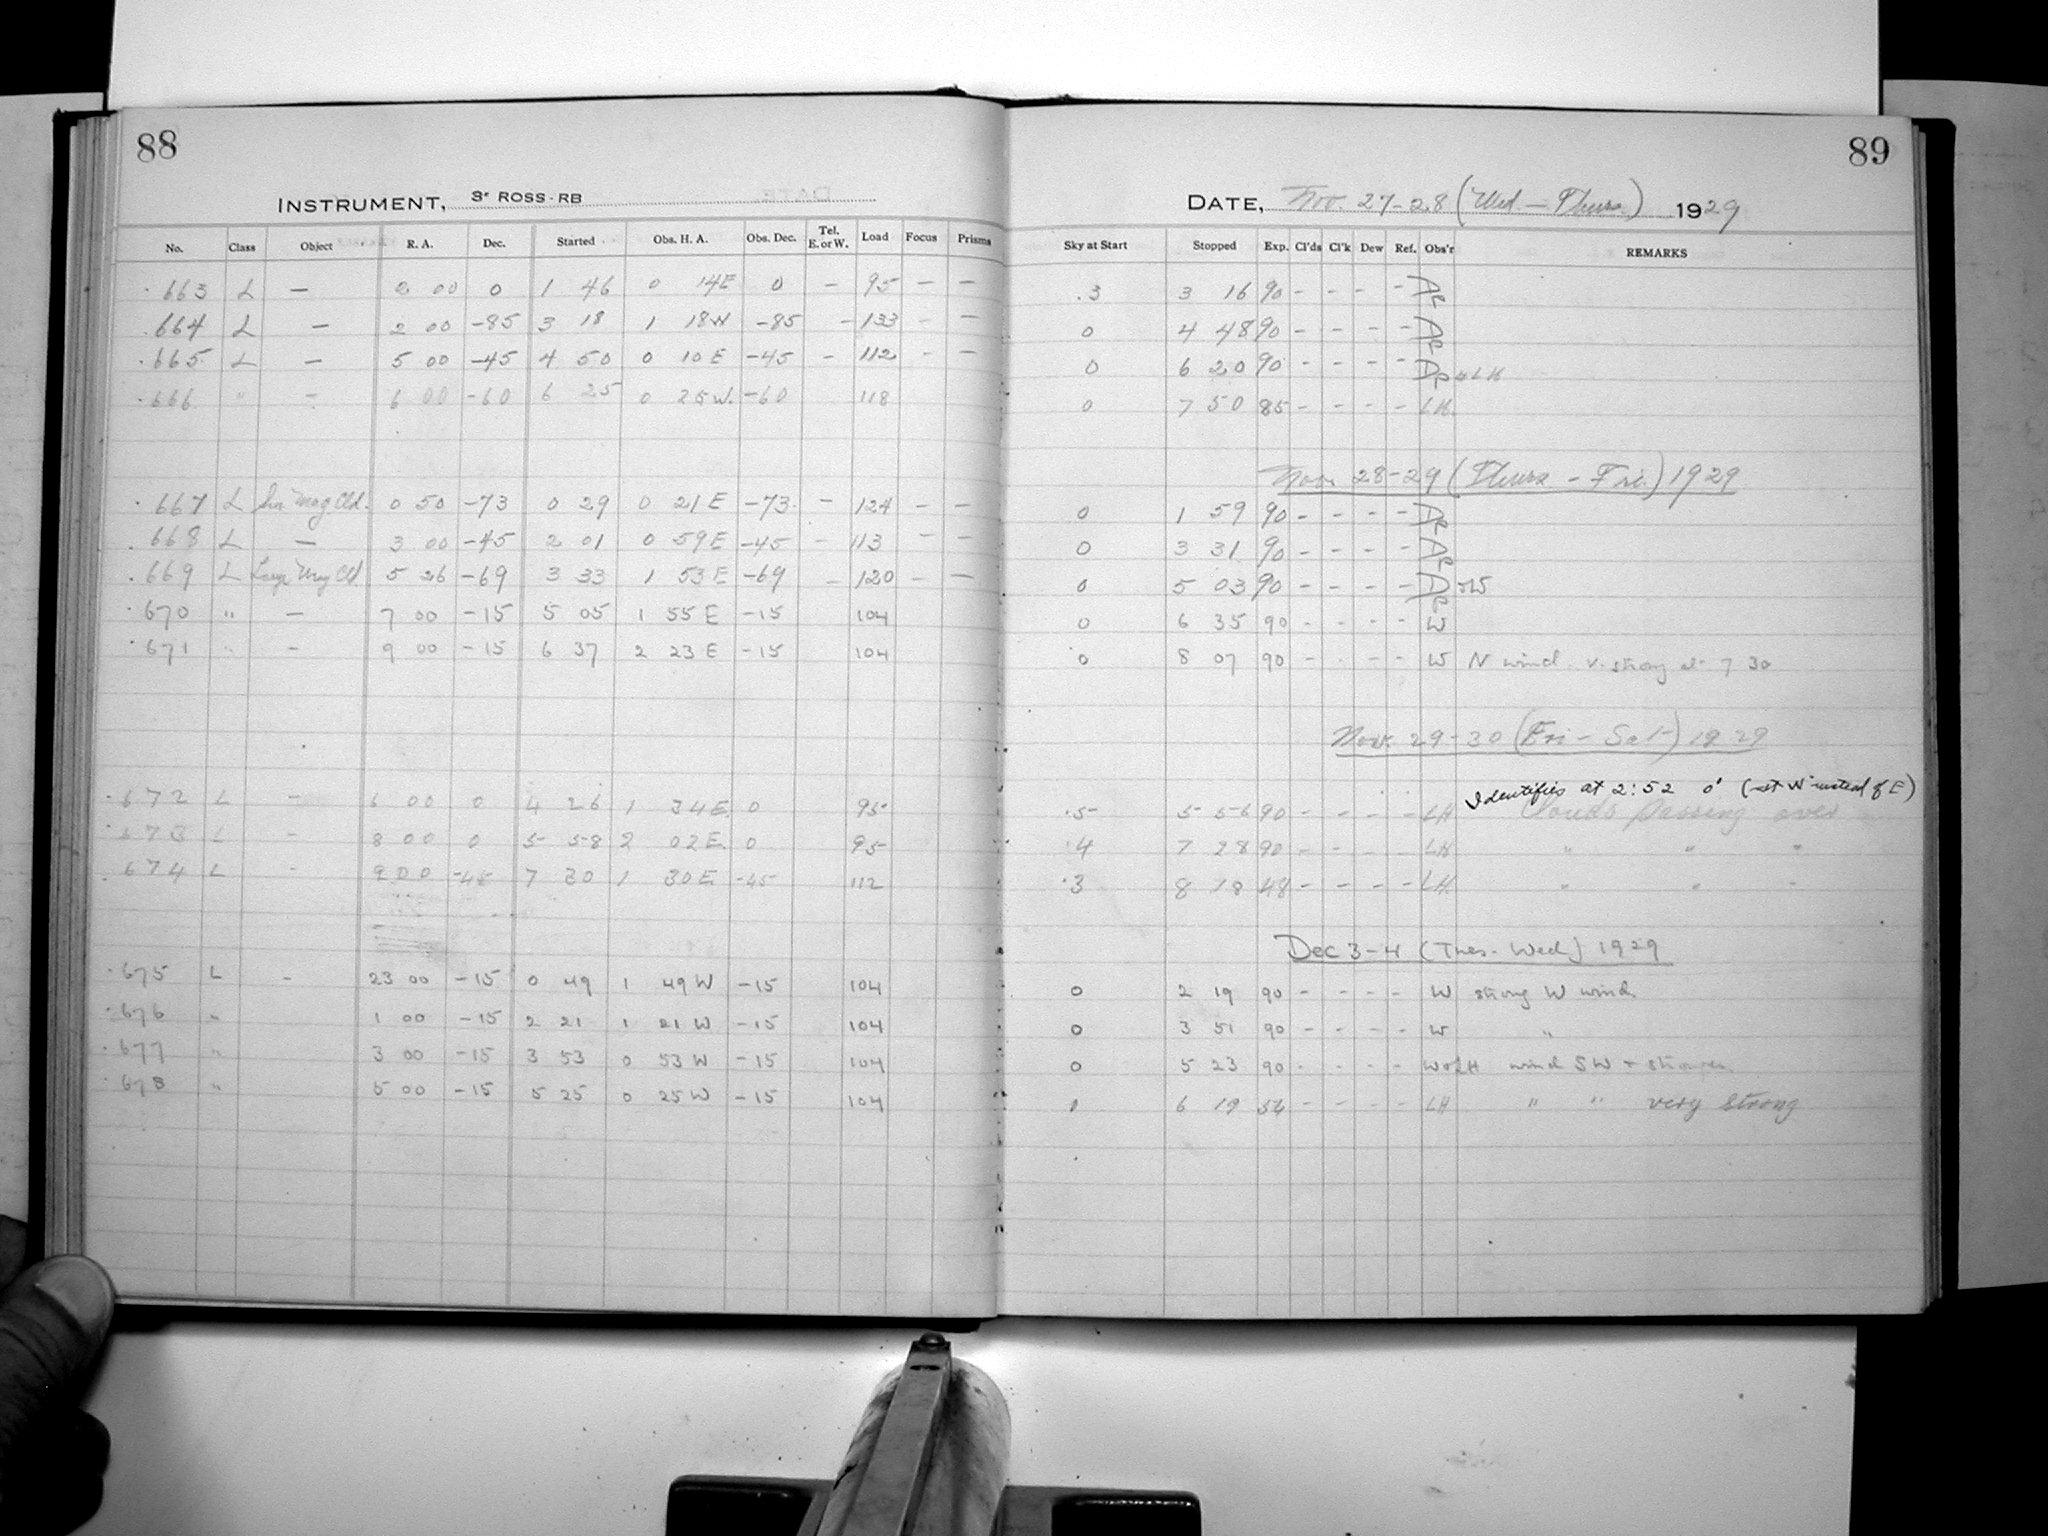 88
INSTRUMENT, 3" ROSS-RB
No. Class Object R. A. Dec. Started Obs. H. A. Obs. Dec. Tel. E. or W. Load Focus Prisms
663 L — 2 00 0 1 46 0 14E 0 — 95 — —
664 L — 2 00 -85 3 18 1 18W -85 — 133 — —
665 L — 5 00 -45 4 50 0 10 E -45 — 112 - —
666 " — 6 00 -60 6 25 0 25W. -60 118
667 L Sm Mag Cld. 0 50 -73 0 29 0 21 E -73 — 124 — —
668 L — 3 00 -45 2 01 0 59E -45 — 113 — —
669 L Large Mag Cld 5 26 -69 3 33 1 53E -69 — 120 — —
670 " — 7 00 -15 5 05 1 55 E -15 104
671 " — 9 00 -15 6 37 2 23 E -15 104
672 L — 6 00 0 4 26 1 34E 0 95
673 L — 8 00 0 5 58 2 02E. 0 95
674 L - 9 00 -45 7 30 1 30E -45 112
675 L - 23 00 -15 0 49 1 49W -15 104
676 " 1 00 -15 2 21 1 21 W -15 104
677 " 3 00 -15 3 53 0 53W -15 104
678 " 5 00 -15 5 25 0 25W -15 104
89
DATE, Nov. 27-28 (Wed — Thurs.) 1929
Sky at Start Stopped Exp. Cl'ds Cl'k Dew Ref. Obs'r REMARKS
.3 3 16 90 - - - -
0 4 48 90 - - - -
0 6 20 90 - - - - & LH
0 7 50 85 - - - - LH.
Nov. 28-29 (Thurs - Fri.) 1929
0 1 59 90 - - - -
0 3 31 90 - - - -
0 5 03 90 - - - -
0 6 35 90 - - - - W
0 8 07 90 - - - - W N wind. v. strong at 7 30
Nov. 29-30 (Fri - Sat) 1929
Identifies at 2:52 0° (set W instead of E)
.5 5 56 90 - - - - LH Clouds passing over
.4 7 28 90 - - - - LH " " "
.3 8 18 48 - - - - LH " " "
Dec 3-4 (Tues - Wed) 1929
0 2 19 90 - - - - W strong W wind.
0 3 51 90 - - - - W "
0 5 23 90 - - - - W & LH wind SW + stronger
0 6 19 54 - - - - LH " " very strong